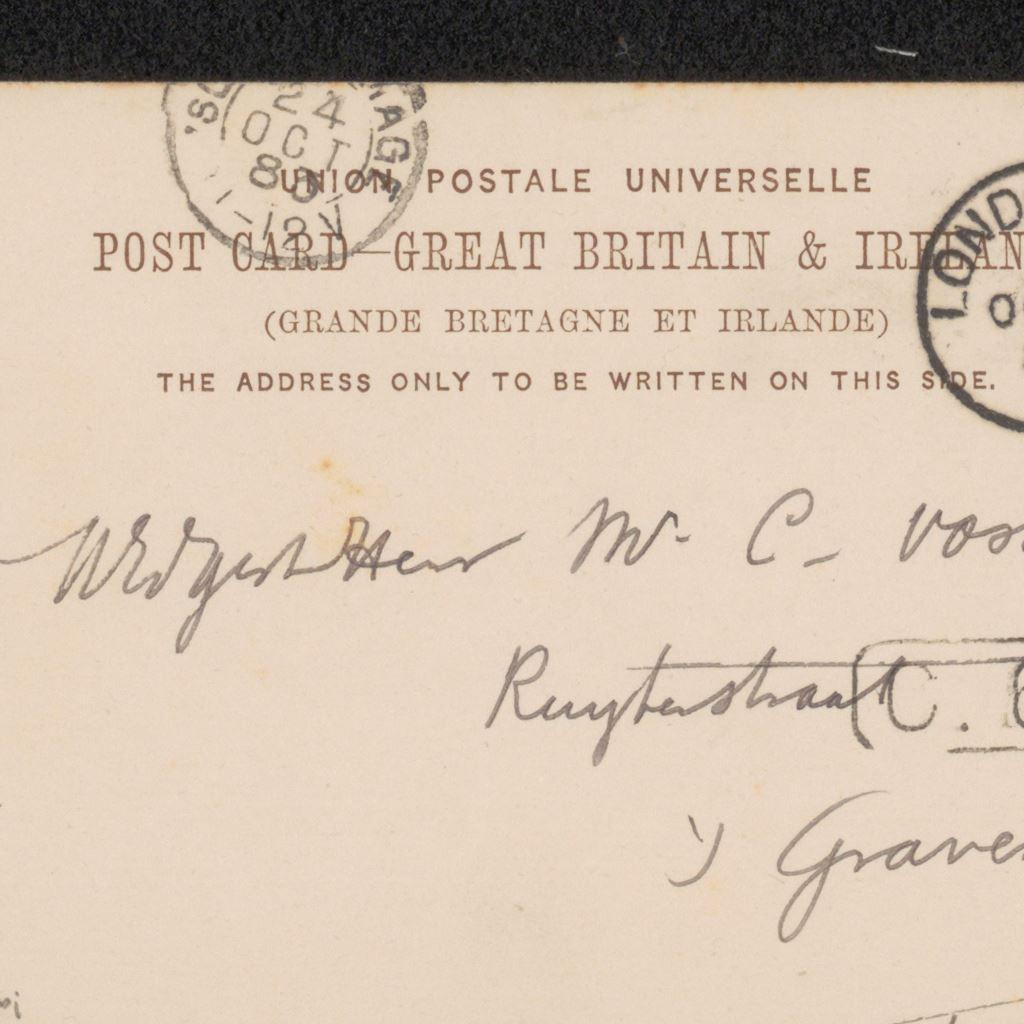 24
OCT
UNION POSTALE UNIVERSELLE
POST CARD—GREAT BRITAIN & IRELAN
(GRANDE BRETAGNE ET IRLANDE)
THE ADDRESS ONLY TO BE WRITTEN ON THIS SIDE.
LOND
WEdgest Heer Mr. C. Vos
Ruyterstraat
C.
's Grave